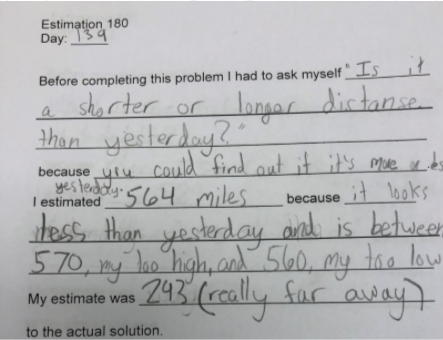 Estimation 180
Day: 139
Before completing this problem I had to ask myself "Is it
a shorter or longar distanse
than yesterday?"
because you could find out if it's more or les
yesterday.
I estimated 564 miles because it looks
less than yesterday and is between
570, my too high, and 560, my too low
My estimate was 243 (really far away)
to the actual solution.